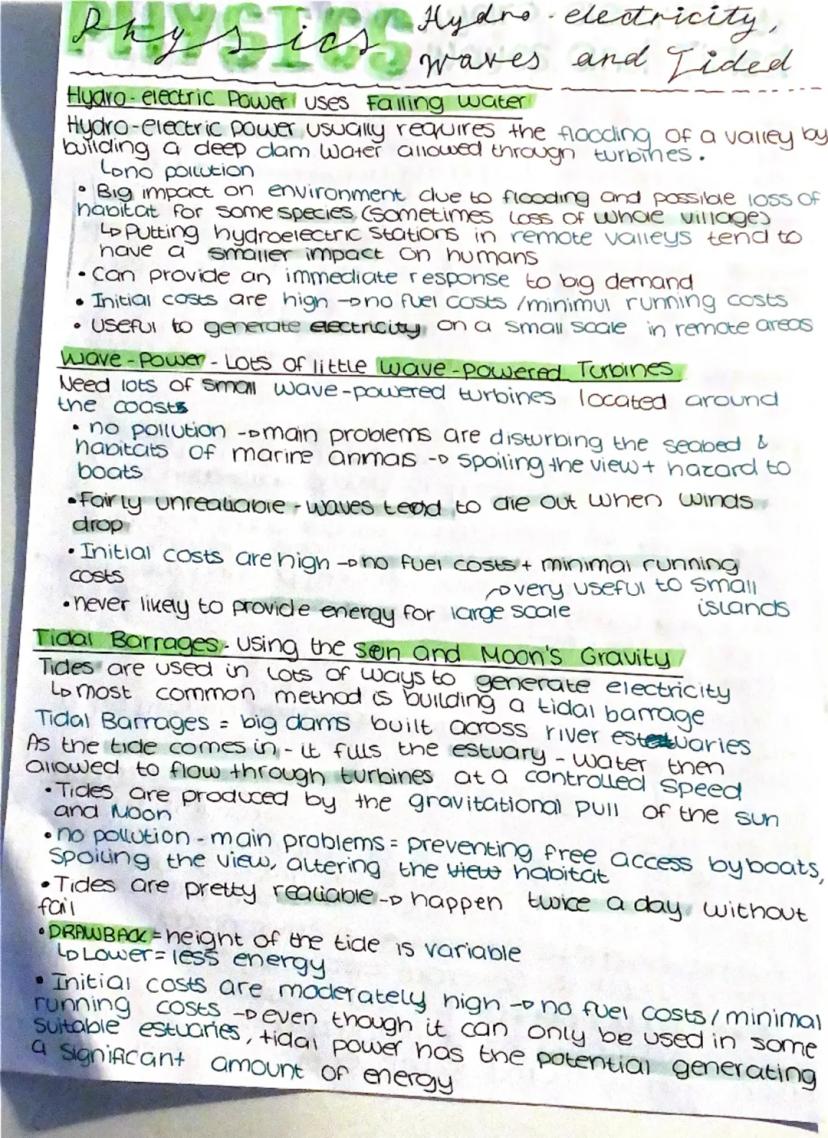 PHYSICS
Physics
Hydro-electricity,
Waves and Tided
Hydro-electric Power uses Falling Water
Hydro-electric power usually requires the flooding of a valley by
building a deep dam water allowed through turbines.
↳no pollution
• Big impact on environment due to flooding and possible loss of
habitat for some species (sometimes loss of whole villages)
↳Putting hydroelectric stations in remote valleys tend to
have a smaller impact on humans
• Can provide an immediate response to big demand
• Initial costs are high →no fuel costs /minimul running costs
• useful to generate electricity on a small scale in remote areas
Wave-Power - Lots of little Wave-powered Turbines
Need lots of small wave-powered turbines located around
the coasts
• no pollution →main problems are disturbing the seabed &
habitats of marine anmals → spoiling the view + hazard to
boats
• Fairly unrealiable - waves tend to die out when winds
drop
• Initial costs are high →no fuel costs + minimal running
costs
→very useful to small
islands
• never likely to provide energy for large scale
Tidal Barrages - using the sun and Moon's Gravity
Tides are used in lots of ways to generate electricity
↳most common method is building a tidal barrage
Tidal Barrages = big dams built across river estuaries
As the tide comes in - it fills the estuary - water then
allowed to flow through turbines at a controlled speed
• Tides are produced by the gravitational pull of the sun
and Moon
• no pollution - main problems = preventing free access by boats,
spoiling the view, altering the view habitat
• Tides are pretty realiable → happen twice a day without
fail
• DRAWBACK = height of the tide is variable
↳Lower = less energy
• Initial costs are moderately high → no fuel costs / minimal
running costs → even though it can only be used in some
suitable estuaries, tidal power has the potential generating
a significant amount of energy